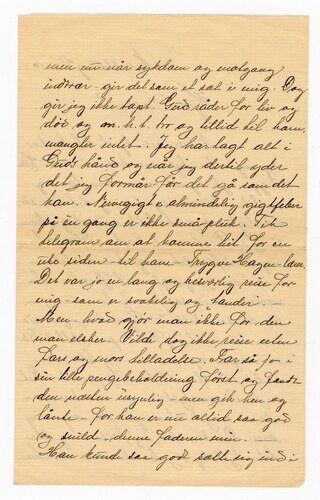 men nu når sykdom og motgang
indtrær gir det som et sæt i mig. Dog
gir jeg ikke tapt. Gud råder for liv og
død og on. h. t. tro og tillid til ham,
mangler intet. Jeg har lagt alt i
Guds hånd og når jeg dertil yder
det jeg formår får det gå som det
kan. Nervegigt & almindelig gigtfeber
på en gang er ikke småpluk. Fik
telegram om at komme hit for en
uke siden til ham Trygve Hagen
Det var jo en lang og besværlig reise for
mig som er svakelig og tander.
Men hvad gjør man ikke for den
man elsker. Vilde dog ikke reise uten
fars og mors tilladelse. Far så jo i
sin lille pengebeholdning først og fandt
den næsten usynlig men gik hen og
lånte for han er nu altid saa god
og snild, denne faderen min.
Han kunde saa godt sætte sig ind i